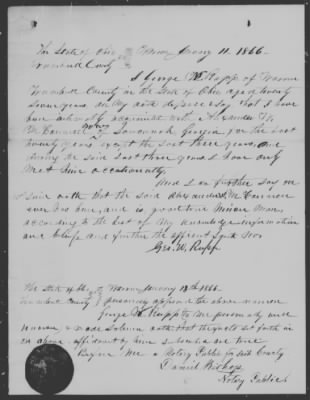 The State of Ohio } Warren January 11. 1866.
Trumbull County } SS
I George W. Rupp of Warren
Trumbull County in the State of Ohio aged twenty
seven years on my oath depose & say that I have
been intimately acquainted with Alexander
McCannon Savannah Georgia for the last
twenty years except the last three years, and
during the said last three years I have only
met him occasionally.
And I do further say on
said oath that the said Alexander McCannon
according to the best of my knowledge information
and belief and further the affiant saith not
Geo. W. Rupp
The State of Ohio } Warren January 11th 1866.
Trumbull County } personally appeared the above named
George W. Rupp to me personally well
known & made solemn oath that the facts set forth in
the above affidavit by him subscribed are true
Before me a Notary Public for said County
Daniel Bishop
Notary Public